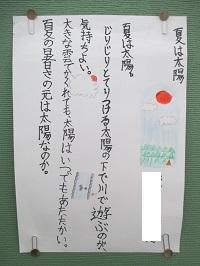 夏は太陽
夏は太陽。
じりじりとてりつける太陽の下で川で遊ぶのが
気持ちよい。
大きな雲でかくれても、太陽はいつでもあたたかい。
夏の暑さの元は太陽なのか。